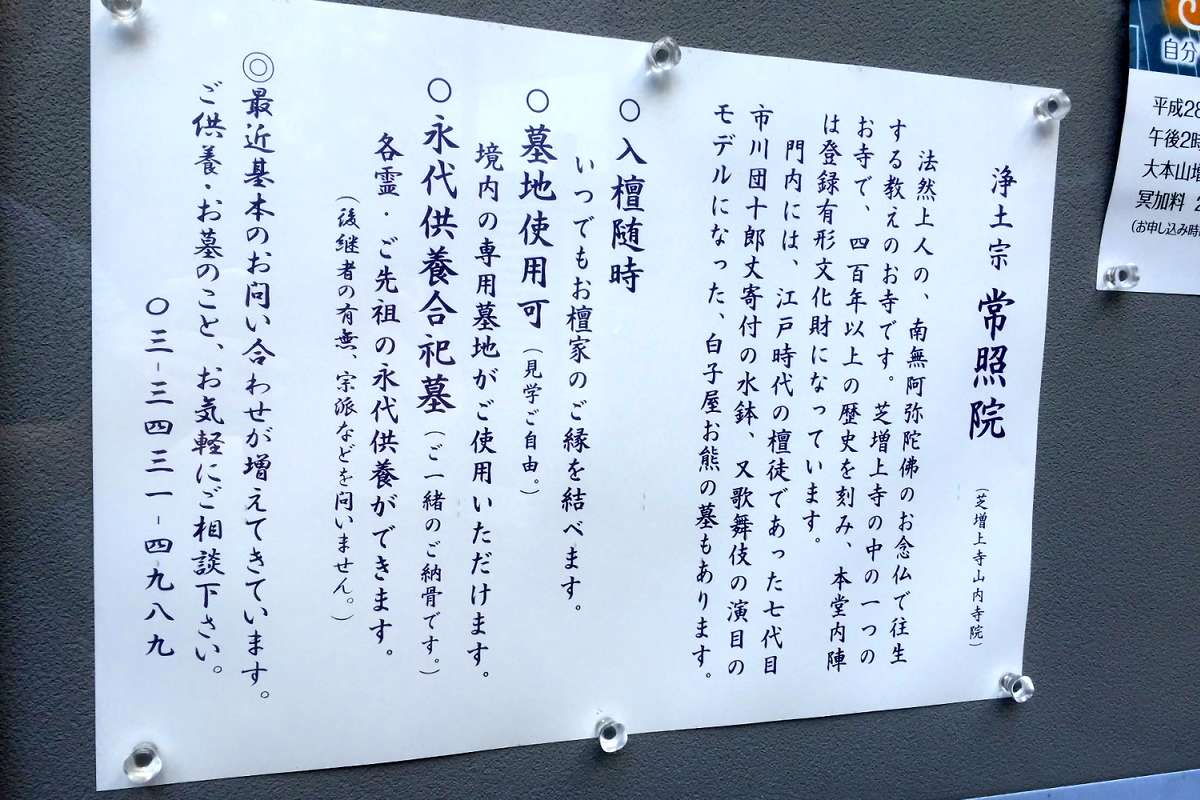 浄土宗 常照院 (芝増上寺山内寺院)
法然上人の、南無阿弥陀佛のお念仏で往生
する教えのお寺です。芝増上寺の中の一つの
お寺で、四百年以上の歴史を刻み、本堂内陣
は登録有形文化財になっています。
門内には、江戸時代の檀徒であった七代目
市川団十郎丈寄付の水鉢、又歌舞伎の演目の
モデルになった、白子屋お熊の墓もあります。
○入檀随時
いつでもお檀家のご縁を結べます。
○墓地使用可(見学ご自由。)
境内の専用墓地がご使用いただけます。
○永代供養合祀墓(ご一緒のご納骨です。)
各霊・ご先祖の永代供養ができます。
(後継者の有無、宗派などを問いません。)
◎最近基本のお問い合わせが増えてきています。
ご供養・お墓のこと、お気軽にご相談下さい。
〇三-三四三一-四九八九
自分
平成28
午後2時
大本山増
冥加料 2
(お申し込み時